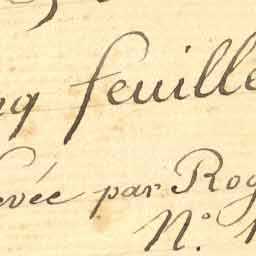 nq feuille
evée par Rog
N.°